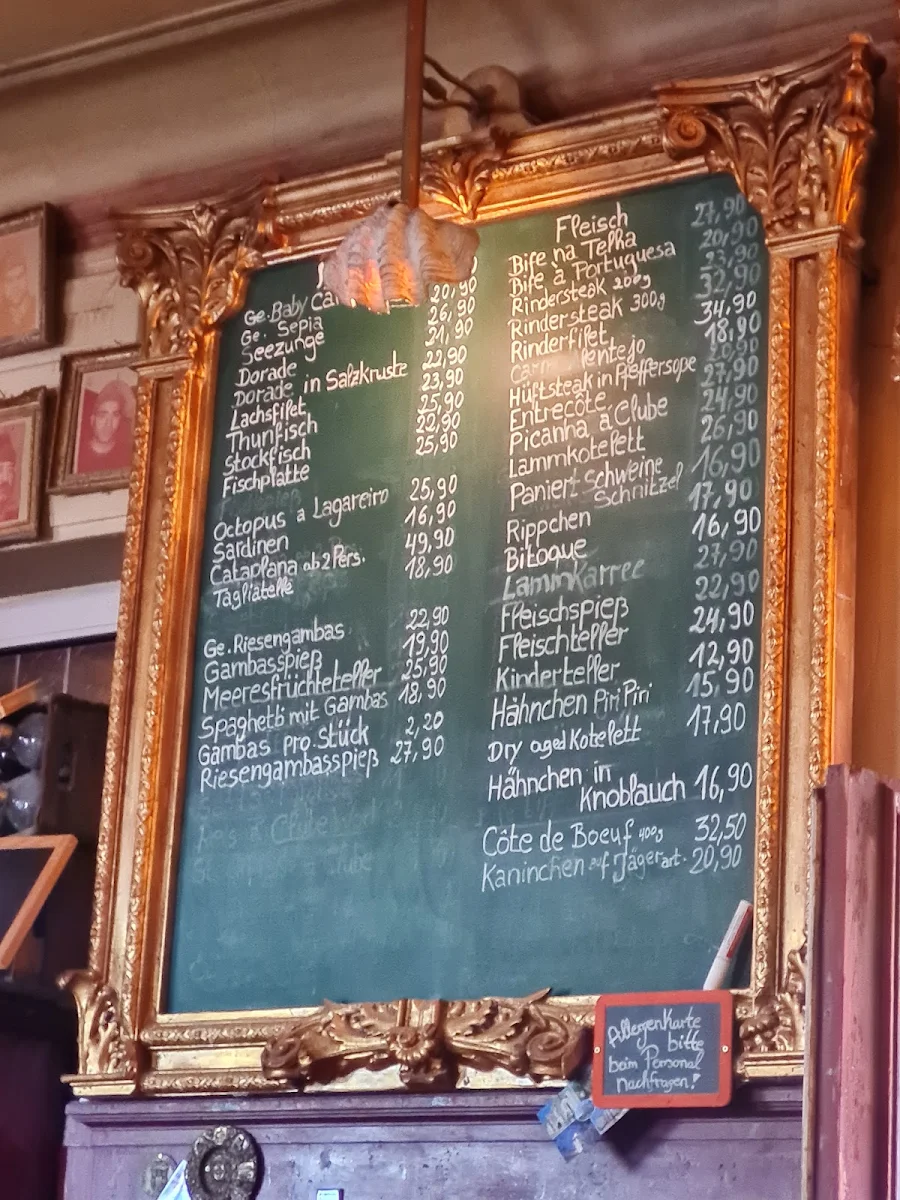 Fleisch
Ge. Baby
Ge. Sepia 20,90
Seezunge 26,90
Dorade 21,90
Dorade in Salzkruste 22,90
Lachsfilet 23,90
Thunfisch 25,90
Stockfisch 22,90
Fischplatte 25,90
Octopus a Lagareiro 25,90
Sardinen 16,90
Cataplana ab 2 Pers. 49,90
Tagliatelle 18,90
Ge. Riesengambas 22,90
Gambasspieß 19,90
Meeresfrüchteteller 25,90
Spaghetti mit Gambas 18,90
Gambas pro Stück 2,20
Riesengambasspieß 27,90
Bife na Telha 27,90
Bife à Portuguesa 20,90
Rindersteak 200g 23,90
Rindersteak 300g 32,90
Rinderfilet 34,90
18,90
Hüftsteak in Pfeffersoße 20,90
Entrecôte 27,90
Picanha à Clube 24,90
Lammkotelett 26,90
Paniert Schweine 16,90
Schnitzel
Rippchen 17,90
Bitoque 16,90
Lammkarree 27,90
Fleischspieß 22,90
Fleischteller 24,90
Kinderteller 12,90
Hähnchen Piri Piri 15,90
Dry aged Kotelett 17,90
Hähnchen in
Knoblauch 16,90
Côte de Boeuf 400g 32,50
Kaninchen auf Jägerart. 20,90
Allergenkarte
bitte
beim Personal
nachfragen!